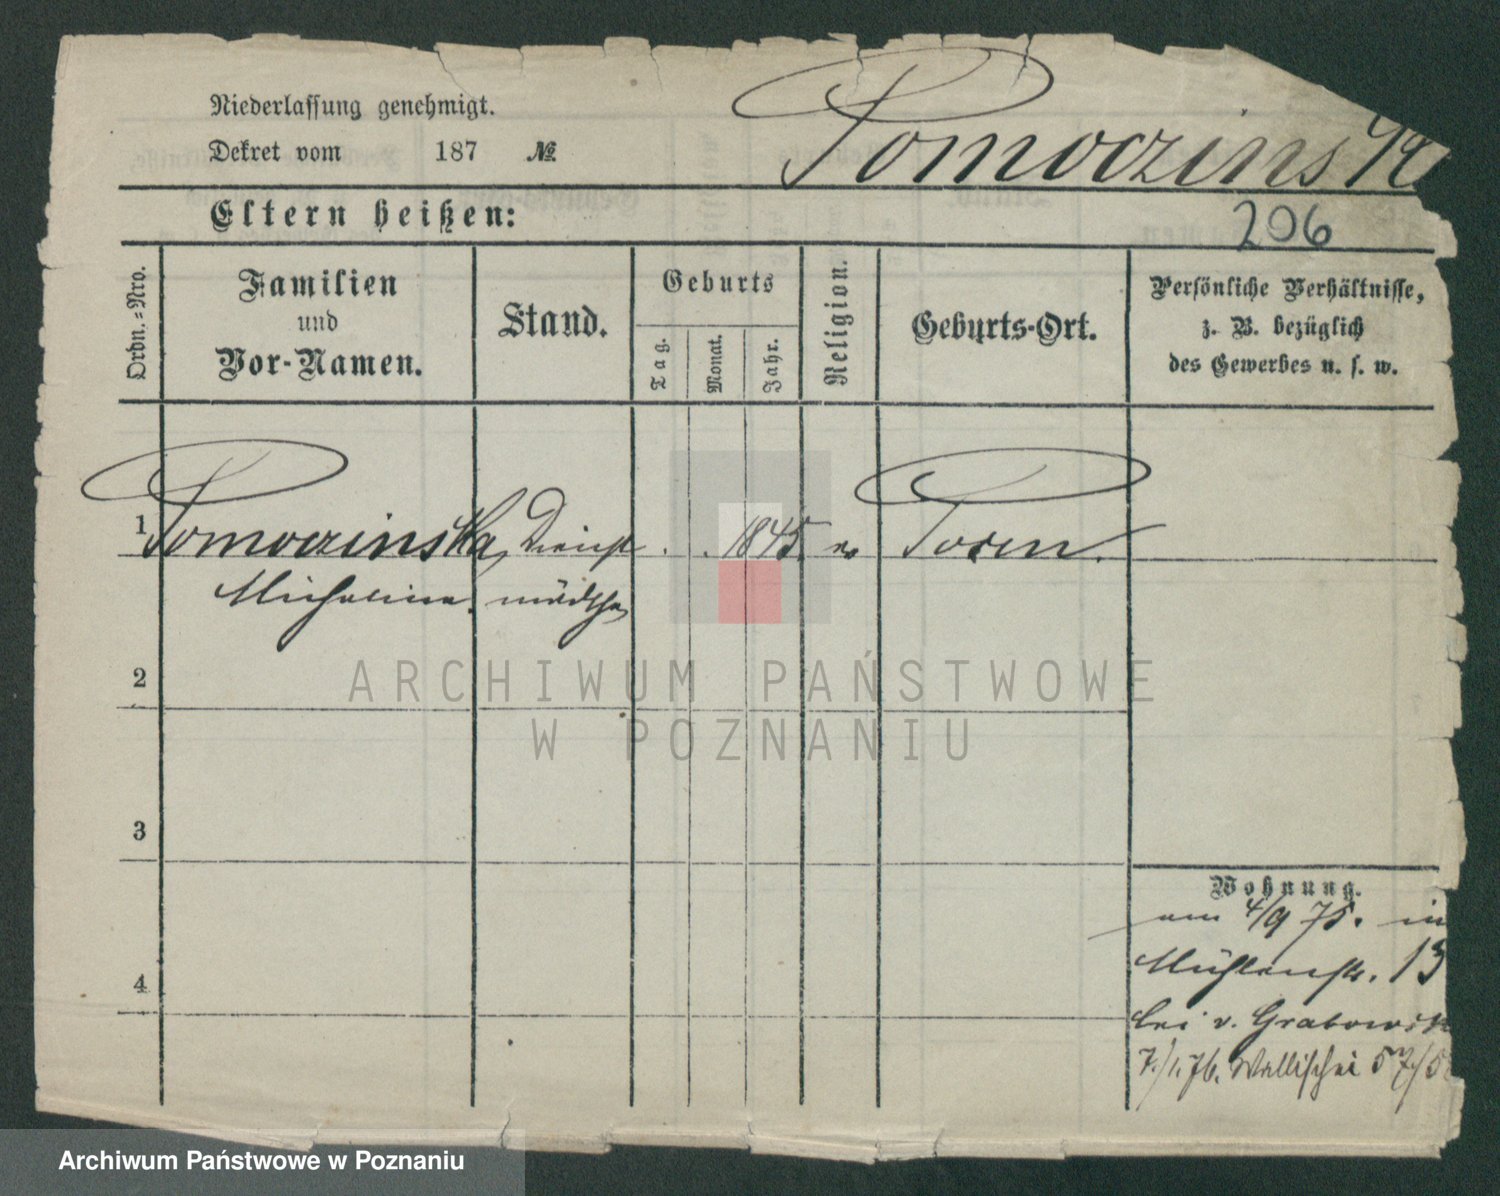 Niederlassung genehmigt.
Dekret vom 187 №
Pomoczinsk
Eltern heißen:
206
Ordn.-Nro.
Familien
und
Vor-Namen.
Stand.
Geburts
Tag.
Monat.
Jahr.
Religion.
Geburts-Ort.
Persönliche Verhältnisse,
z. B. bezüglich
des Gewerbes u. s. w.
1 Pomoczinska, Dienst 1845. Posen.
Michalina. mädchen
2
3
4
Wohnung.
am 4/9 75. in
Mühlenstr. 13
bei v. Grabowsk
7./1. 76. Wallischei 57/5
ARCHIWUM PAŃSTWOWE
W POZNANIU
Archiwum Państwowe w Poznaniu